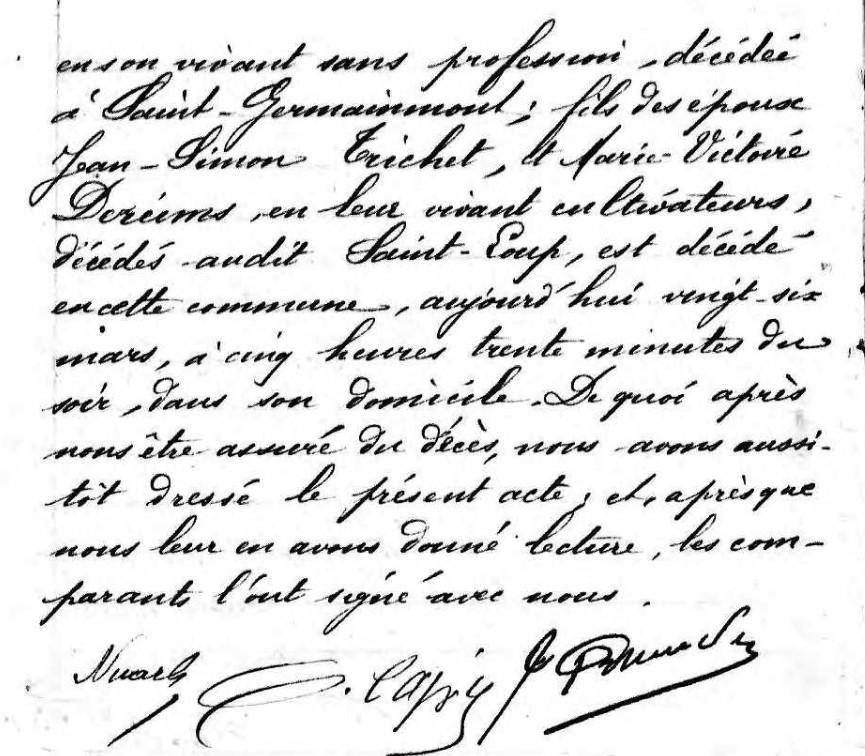 en son vivant sans profession, décédée
à Saint-Germainmont; fils des époux
Jean-Simon Trichet, et Marie-Victoire
Dereims, en leur vivant cultivateurs,
décédés audit Saint-Loup, est décédé
en cette commune, aujourd'hui vingt-six
mars, à cinq heures trente minutes du
soir, dans son domicile. De quoi après
nous être assuré du décès, nous avons aussi-
tôt dressé le présent acte; et, après que
nous leur en avons donné lecture, les com-
parants l'ont signé avec nous.